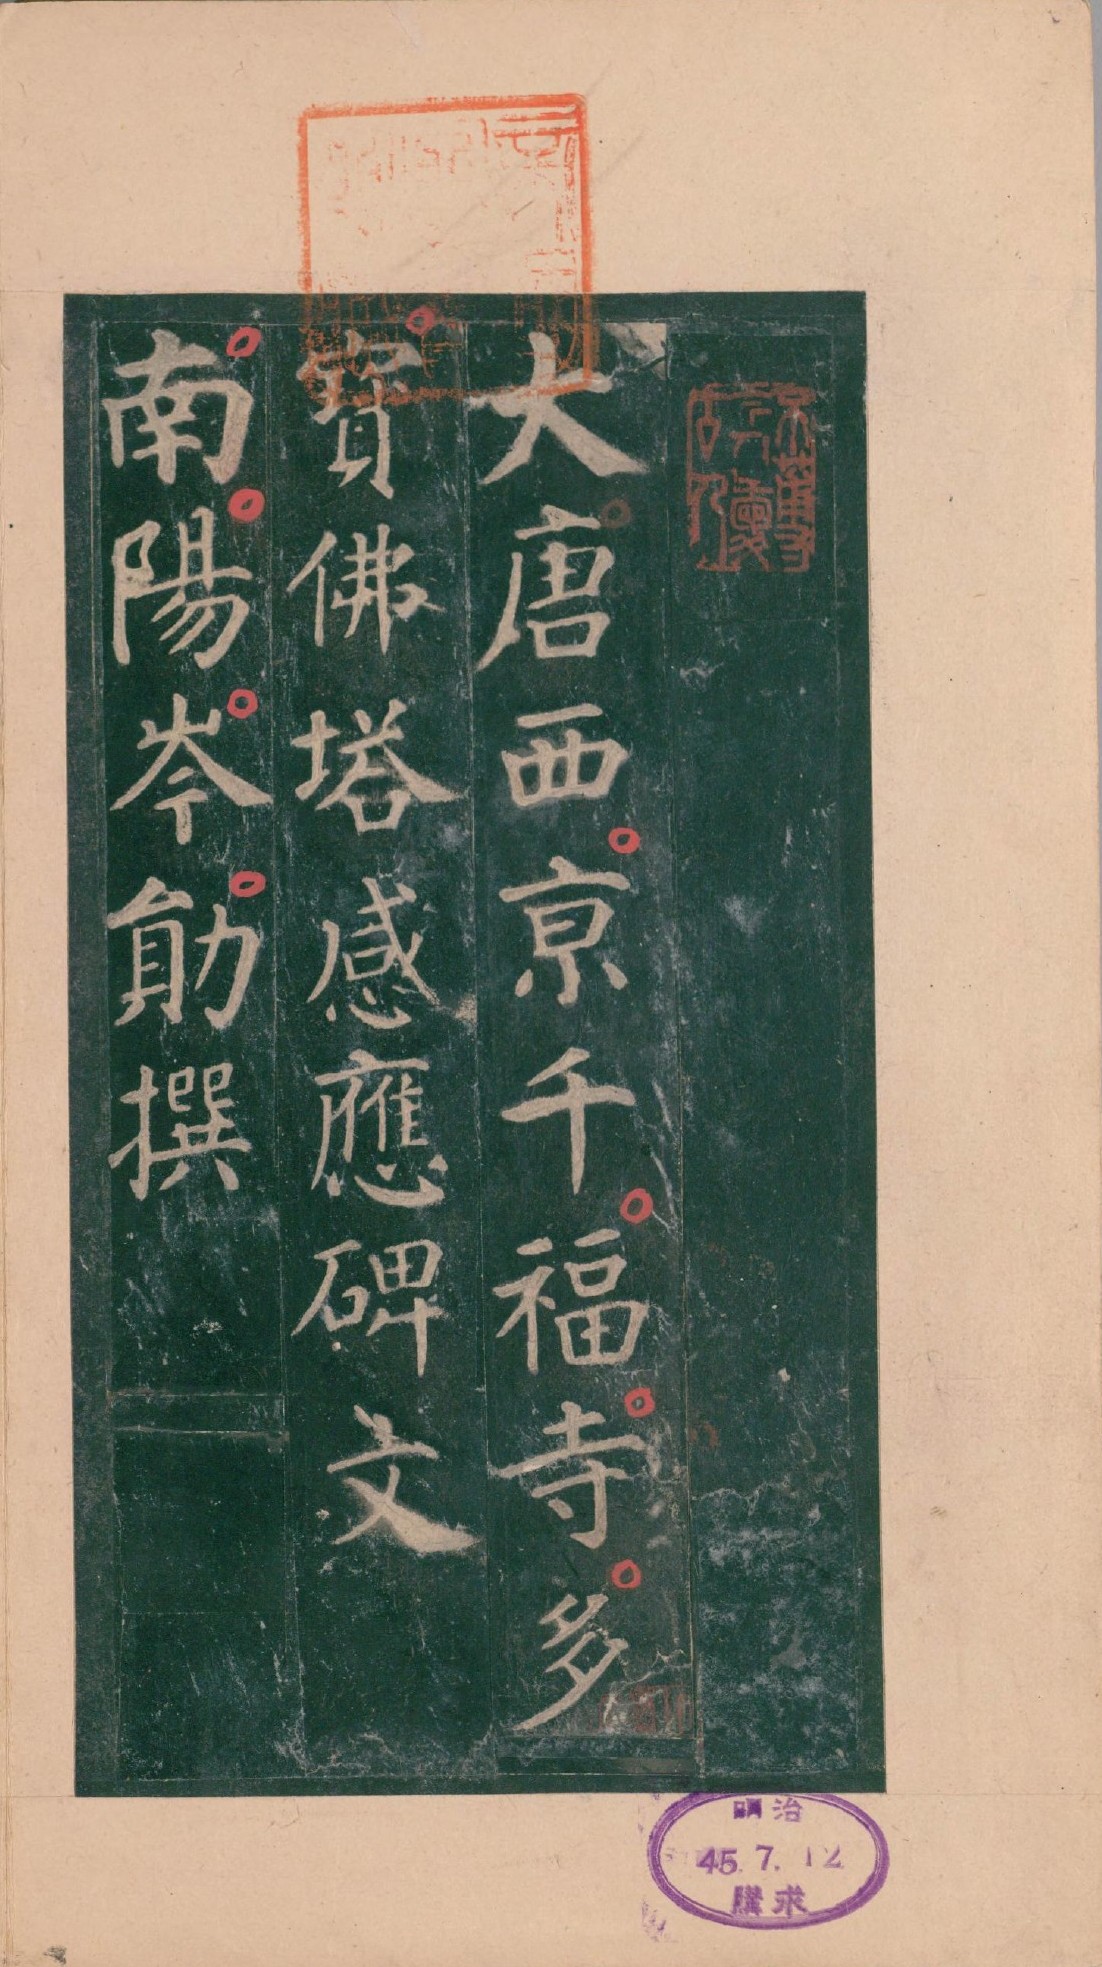 大唐西京千福寺多
寶佛塔感應碑文
南陽岑勛撰
明治
45.7.12
購求